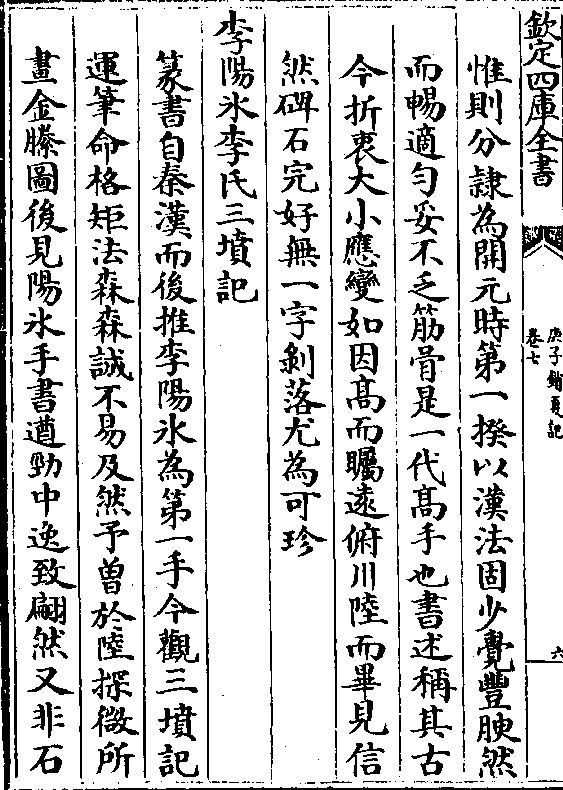 欽定四庫全書
庚子銷夏記
卷七
六
惟則分隷為開元時第一揆以漢法固少覺豐腴然
而暢適勻妥不乏筋骨是一代髙手也書述稱其古
今折衷大小應變如因髙而矚遠俯川陸而畢見信
然碑石完好無一字剝落尤為可珍
李陽氷李氏三墳記
篆書自秦漢而後推李陽氷為第一手今觀三墳記
運筆命格矩法森森誠不易及然予曾於陸探微所
畫金縢圖後見陽氷手書遒勁中逸致翩然又非石